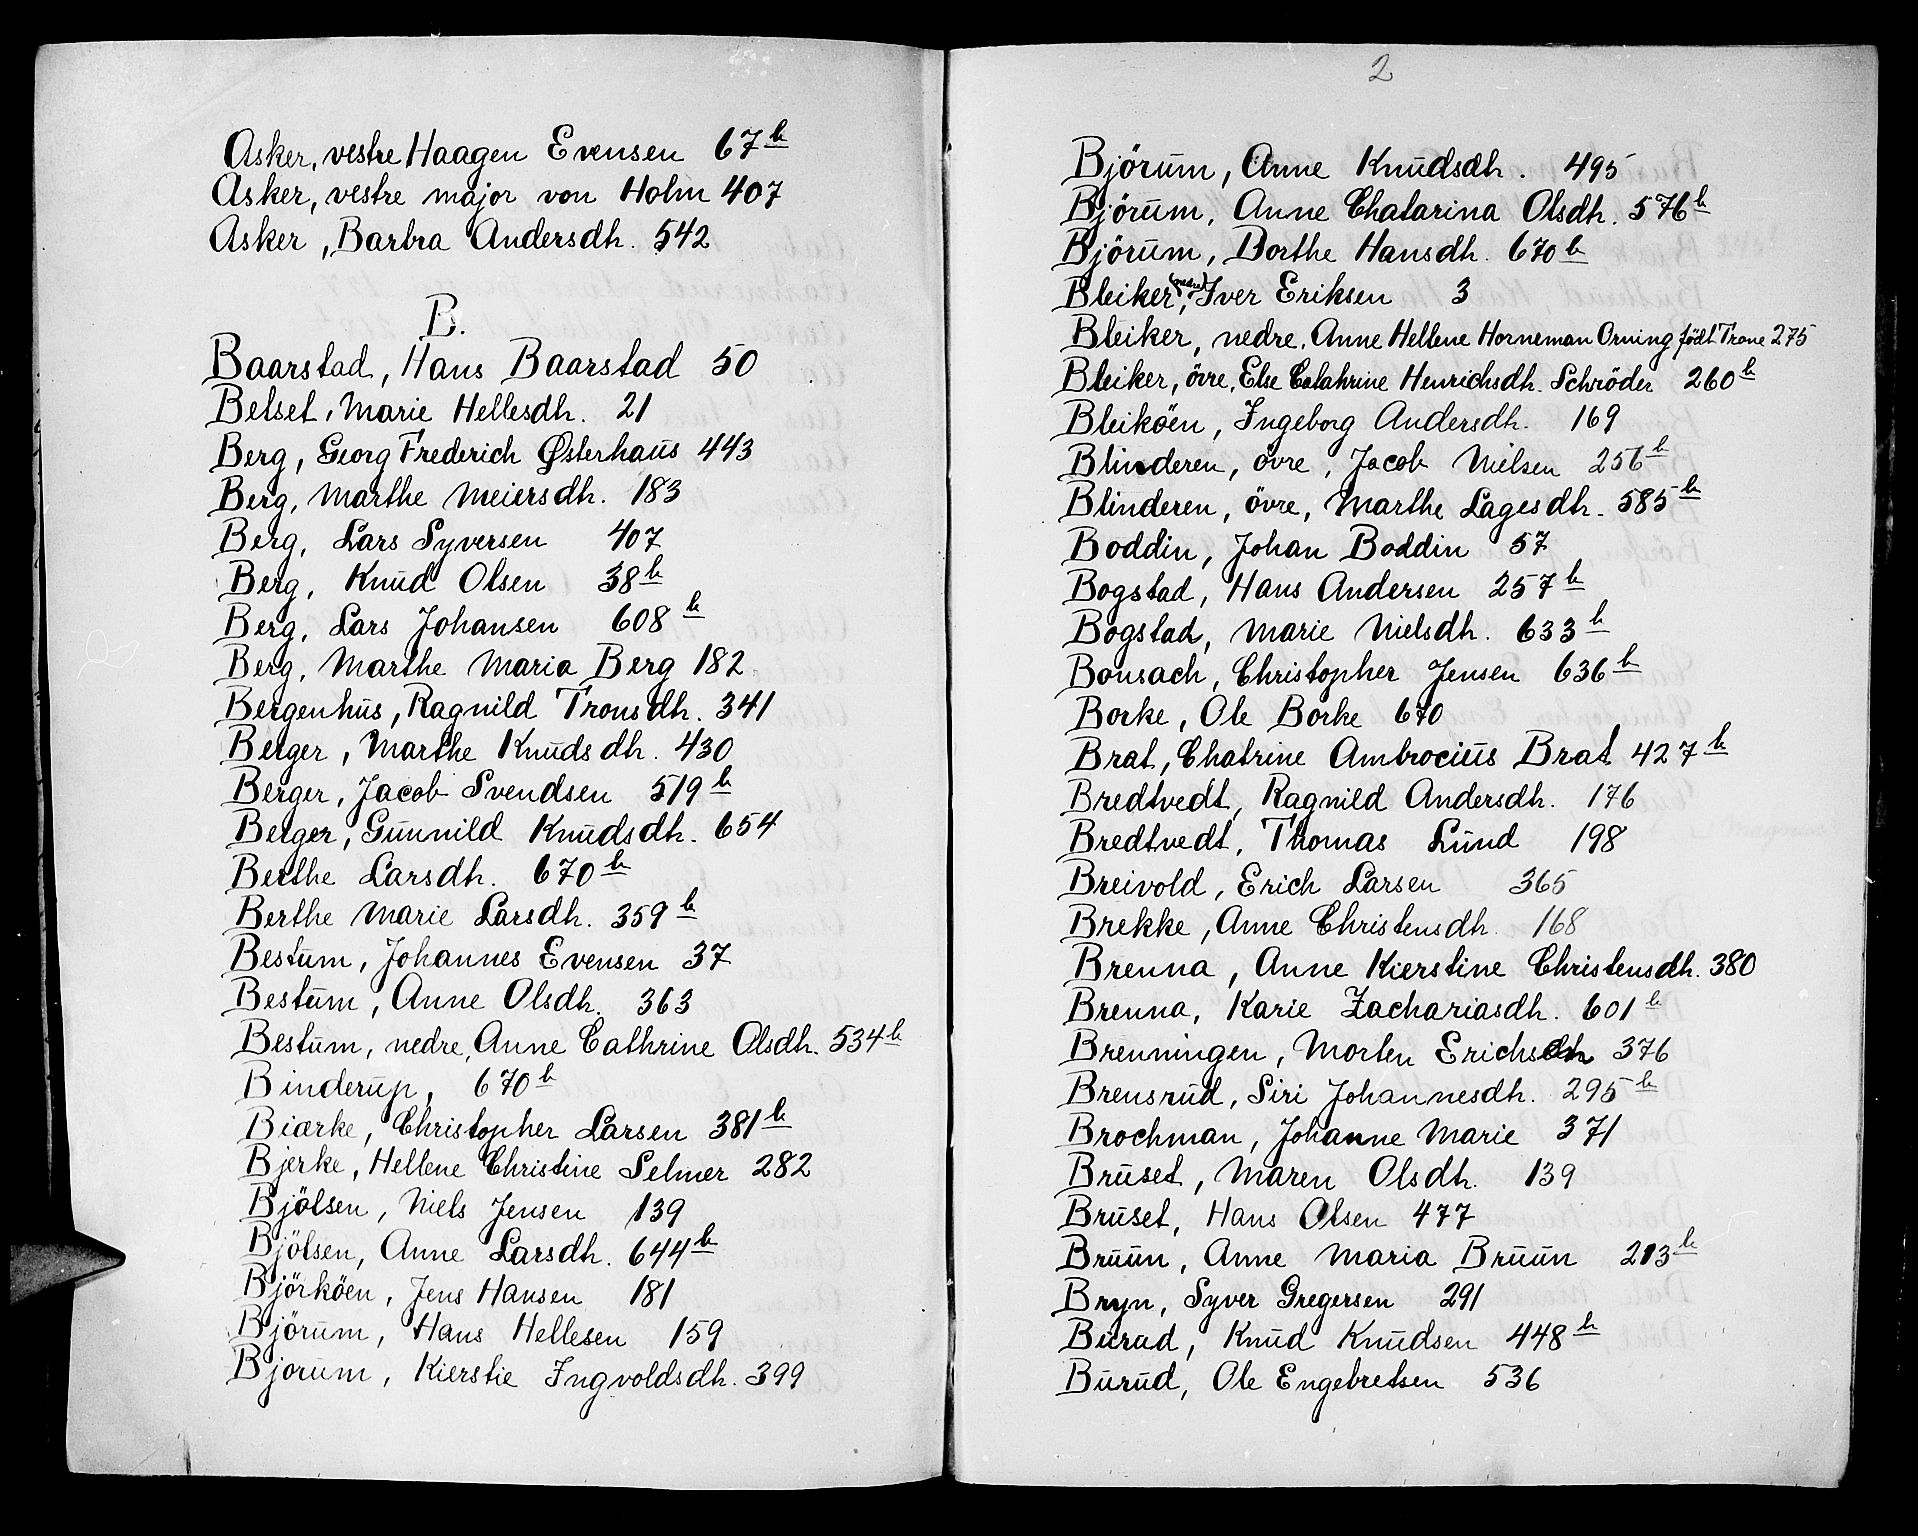 Asker, vestre Haagen Evensen 67b
Asker, vestre major von Holm 407
Asker, Barbra Andersdh. 542
B.
Baarstad, Hans Baarstad 50
Belset, Marie Hellesdh. 21
Berg, Georg Frederich Østerhaüs 443
Berg, Marthe Meiersdh. 183
Berg, Lars Syversen 407
Berg, Knüd Olsen 38b
Berg, Lars Johansen 608b
Berg, Marthe Maria Berg 182
Bergenhüs, Ragnild Tronsdh. 341
Berger, Marthe Knüdsdh. 430
Berger, Jacob Svendsen 519b
Berger, Günnild Knüdsdh. 654
Berthe Larsdh. 670b
Berthe Marie Larsdh. 359b
Bestüm, Johannes Evensen 37
Bestüm, Anne Olsdh. 363
Bestüm, nedre, Anne Cathrine Olsdh. 534b
Binderüp, 670b
Biærke, Christopher Larsen 381b
Bjerke, Hellene Christine Selmer 282
Bjölsen, Niels Jensen 139
Bjölsen, Anne Larsdh. 644b
Björköen, Jens Hansen 181
Björüm, Hans Hellesen 159
Bjorüm, Kierstie Ingvoldsdh. 399
2
Björüm, Anne Knüdsdh. 495
Björüm, Anne Chatarina Olsdh. 576b
Björüm, Dorthe Hansdh. 670b
Bleiker, (nedre) Iver Eriksen 3
Bleiker, nedre, Anne Hellene Horneman Orning födt Trane 275
Bleiker, övre, Else Catahrine Henrichsdh. Schröder 260b
Bleiköen, Ingeborg Andersdh. 169
Blinderen, övre, Jacob Nielsen 256b
Blinderen, övre, Marthe Lagesdh. 585b
Boddin, Johan Boddin 57
Bogstad, Hans Andersen 257b
Bogstad, Marie Nielsdh. 633b
Bonsach, Christopher Jensen 636b
Borke, Ole Borke 670
Brat, Chatrine Ambrociüs Brat 427b
Bredtvedt, Ragnild Andersdh. 176
Bredtvedt, Thomas Lünd 198
Breivold, Erich Larsen 365
Brekke, Anne Christensdh. 168
Brenna, Anne Kierstine Christensdh. 380
Brenna, Karie Zachariasdh. 601b
Brenningen, Morten Erichsdh 376
Brensrüd, Siri Johannesdh. 295b
Brochman, Johanne Marie 371
Brüset, Maren Olsdh. 139
Brüset, Hans Olsen 477
Brüün, Anne Maria Brüün 213b
Bryn, Syver Gregersen 291
Bürüd, Knüd Knüdsen 448b
Bürüd, Ole Engebretsen 536